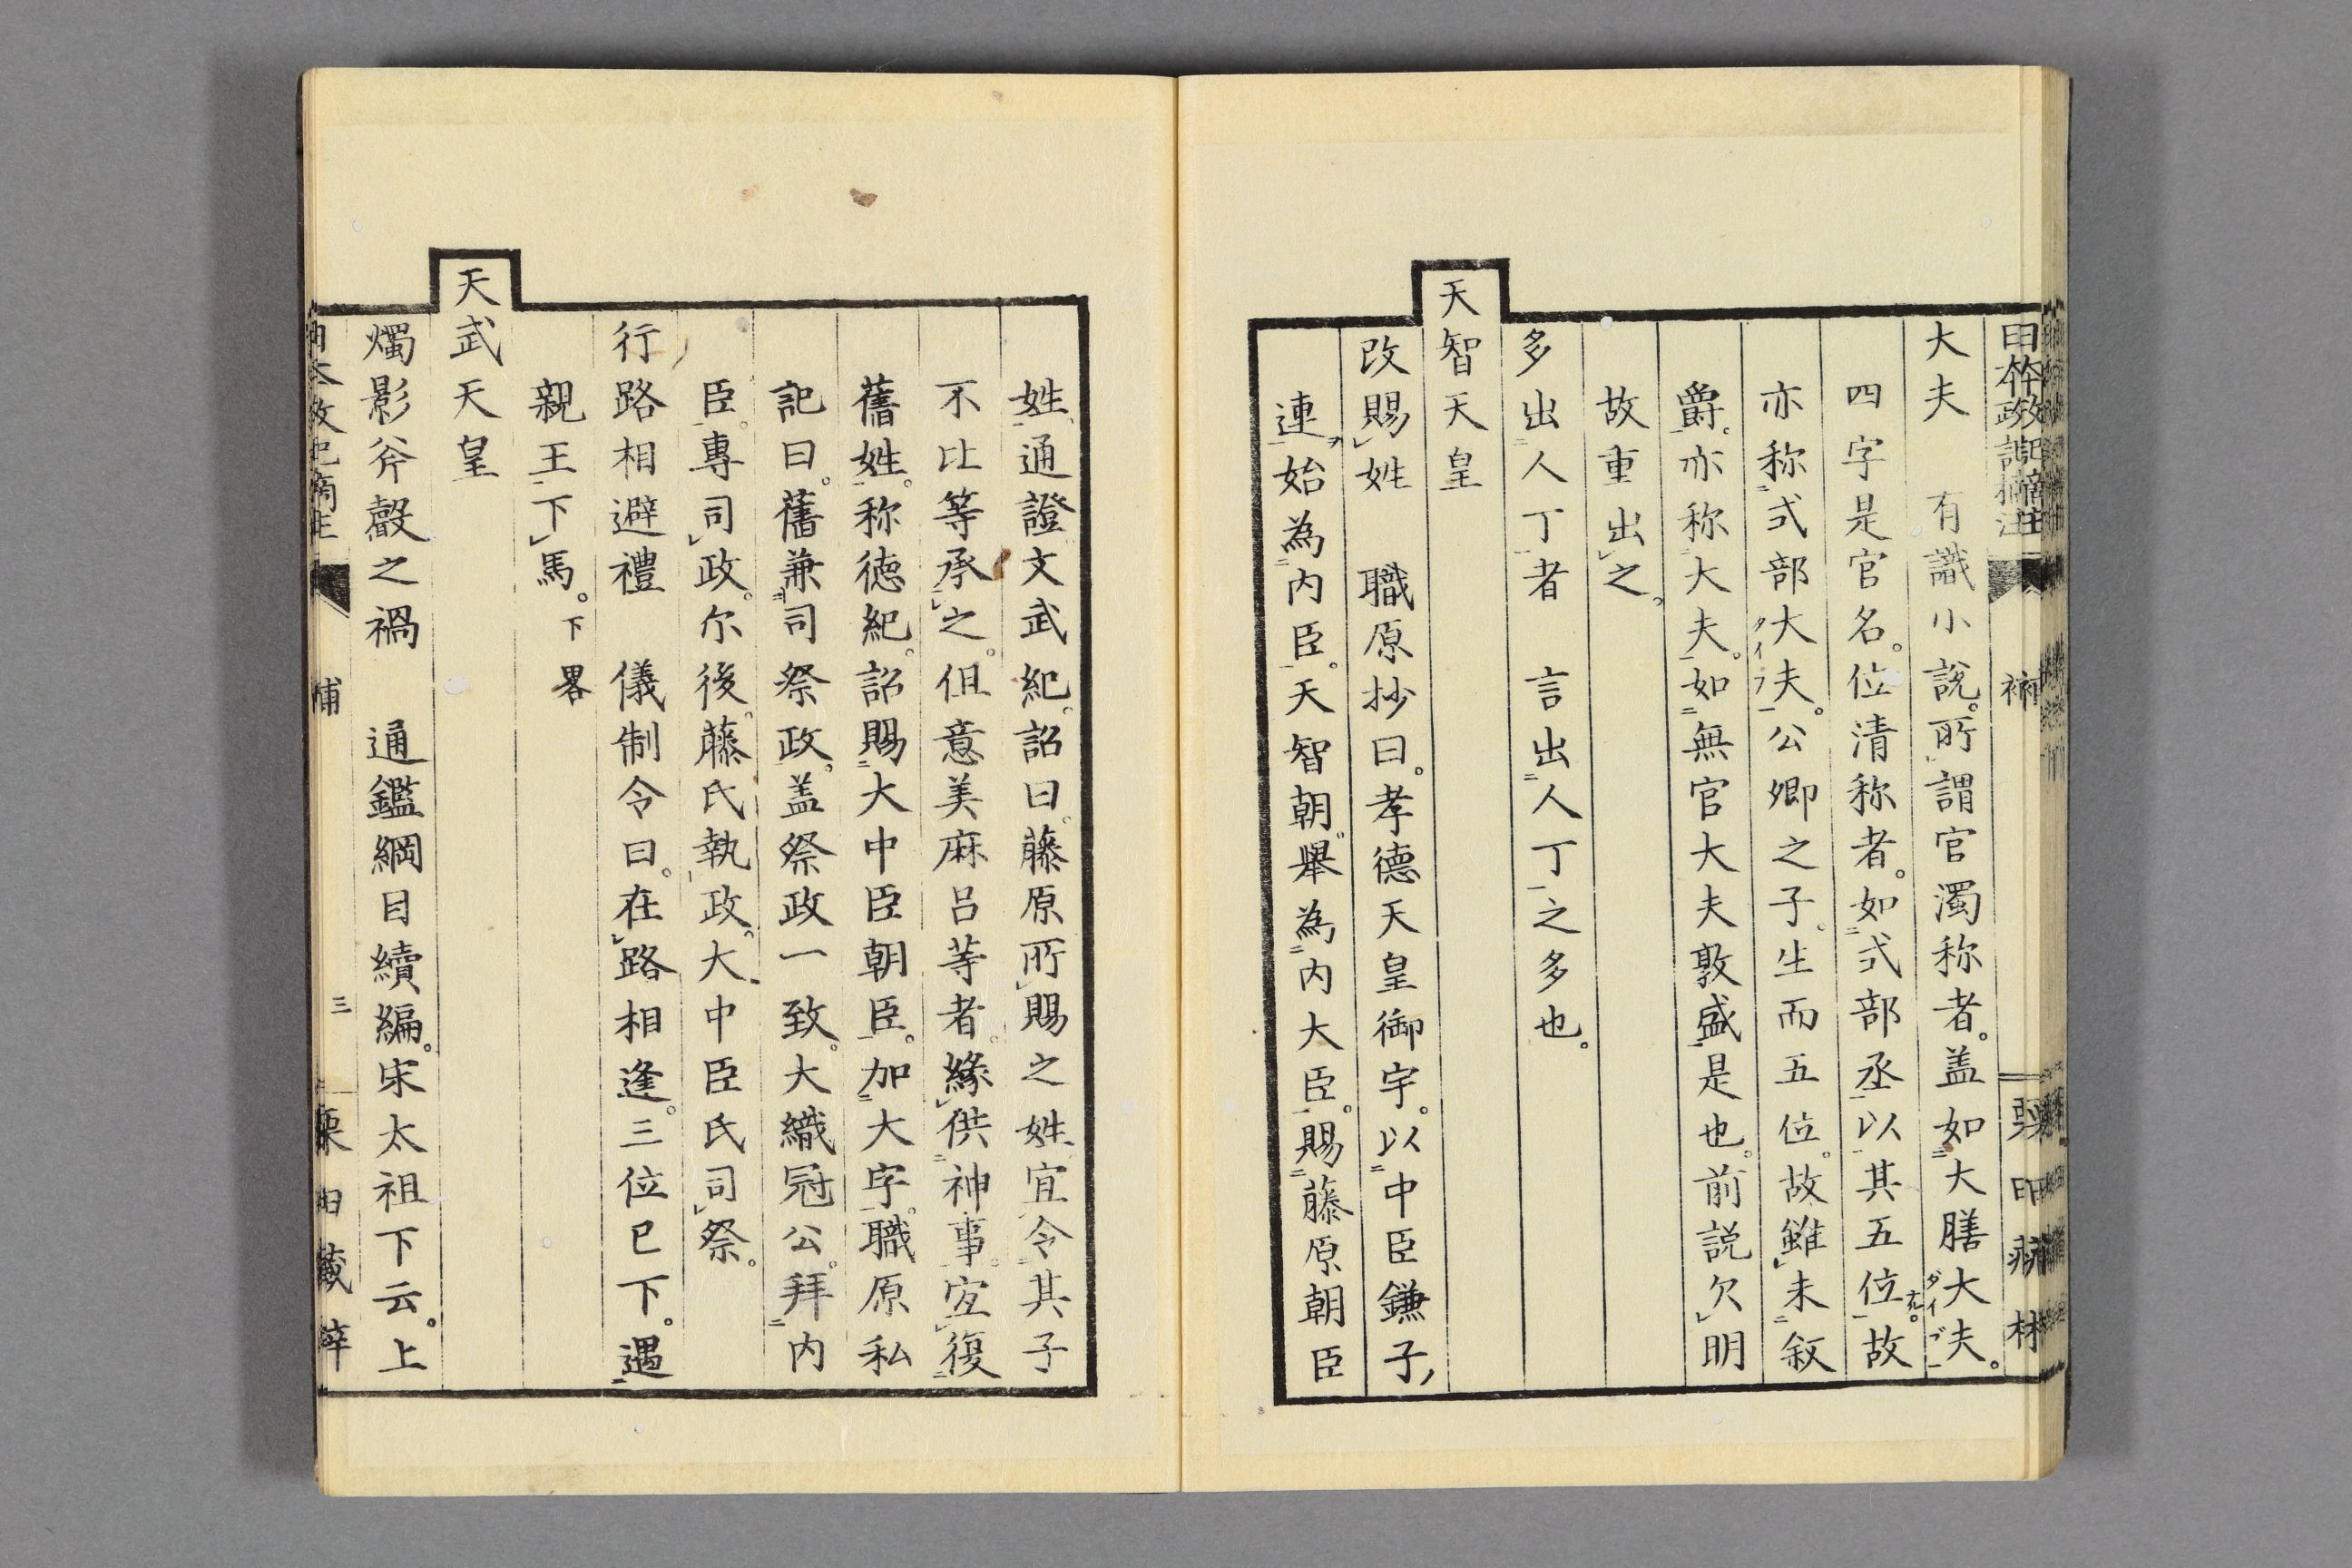 大夫　有識小説。所謂官濁称者。盖如大膳大夫。
四字是官名。位清称者。如式部丞以其五位。故
亦称式部大夫。公卿之子。生而五位。故雖未叙
爵。亦称大夫。如無官大夫敦盛是也。前説欠明
故重出之。
多出人丁者　言出人丁之多也。
天智天皇
改賜姓　職原抄曰。孝德天皇御宇。以中臣鎌子
連始為内臣。天智朝。舉為内大臣。賜藤原朝臣
姓。通證文武紀。詔曰。藤原所賜之姓。宜令其子
不比等承之。但意美麻呂等者。緣供神事。宜復
舊姓。称徳紀。詔賜大中臣朝臣。加大字。職原私
記曰。舊兼司祭政。盖祭政一致。大織冠公。拜内
臣。專司政。尓後。藤氏執政。大中臣氏司祭。
行路相避禮　儀制令曰。在路相逢。三位已下。遇
親王下馬。下畧
天武天皇
燭影斧聲之禍　通鑑綱目續編。宋太祖下云。上
三